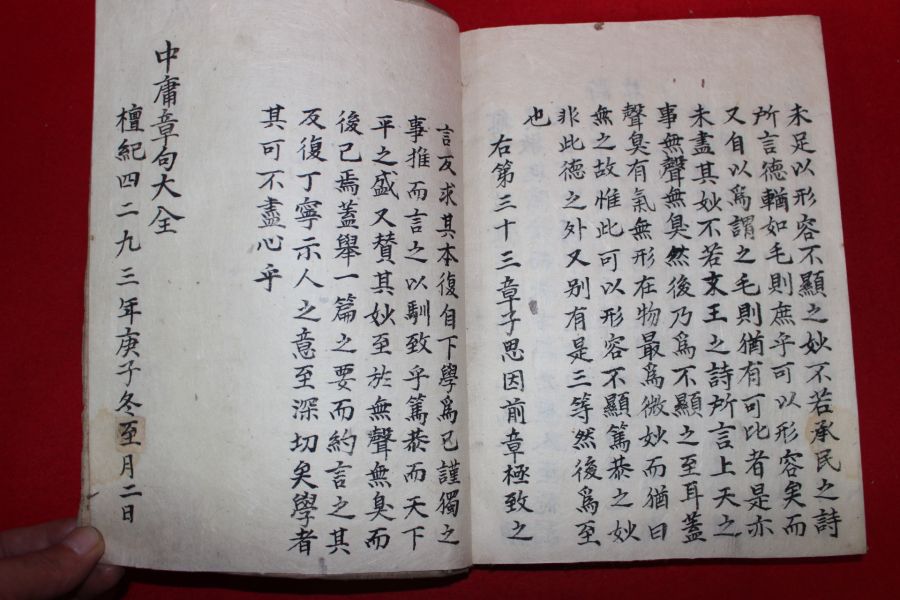 未足以形容不顯之妙不若承民之詩
所言德輶如毛則庶乎可以形容矣而
又自以爲謂之毛則猶有可比者是亦
未盡其妙不若文王之詩所言上天之
事無聲無臭然後乃爲不顯之至耳蓋
聲臭有氣無形在物最爲微妙而猶曰
無之故惟此可以形容不顯篤恭之妙
非此德之外又別有是三等然後爲至
也
右第三十三章子思因前章極致之
言反求其本復自下學爲已謹獨之
事推而言之以馴致乎篤恭而天下
平之盛又賛其妙至於無聲無臭而
後已焉蓋舉一篇之要而約言之其
反復丁寧示人之意至深切矣學者
其可不盡心乎
中庸章句大全
檀紀四二九三年庚子冬至月二日